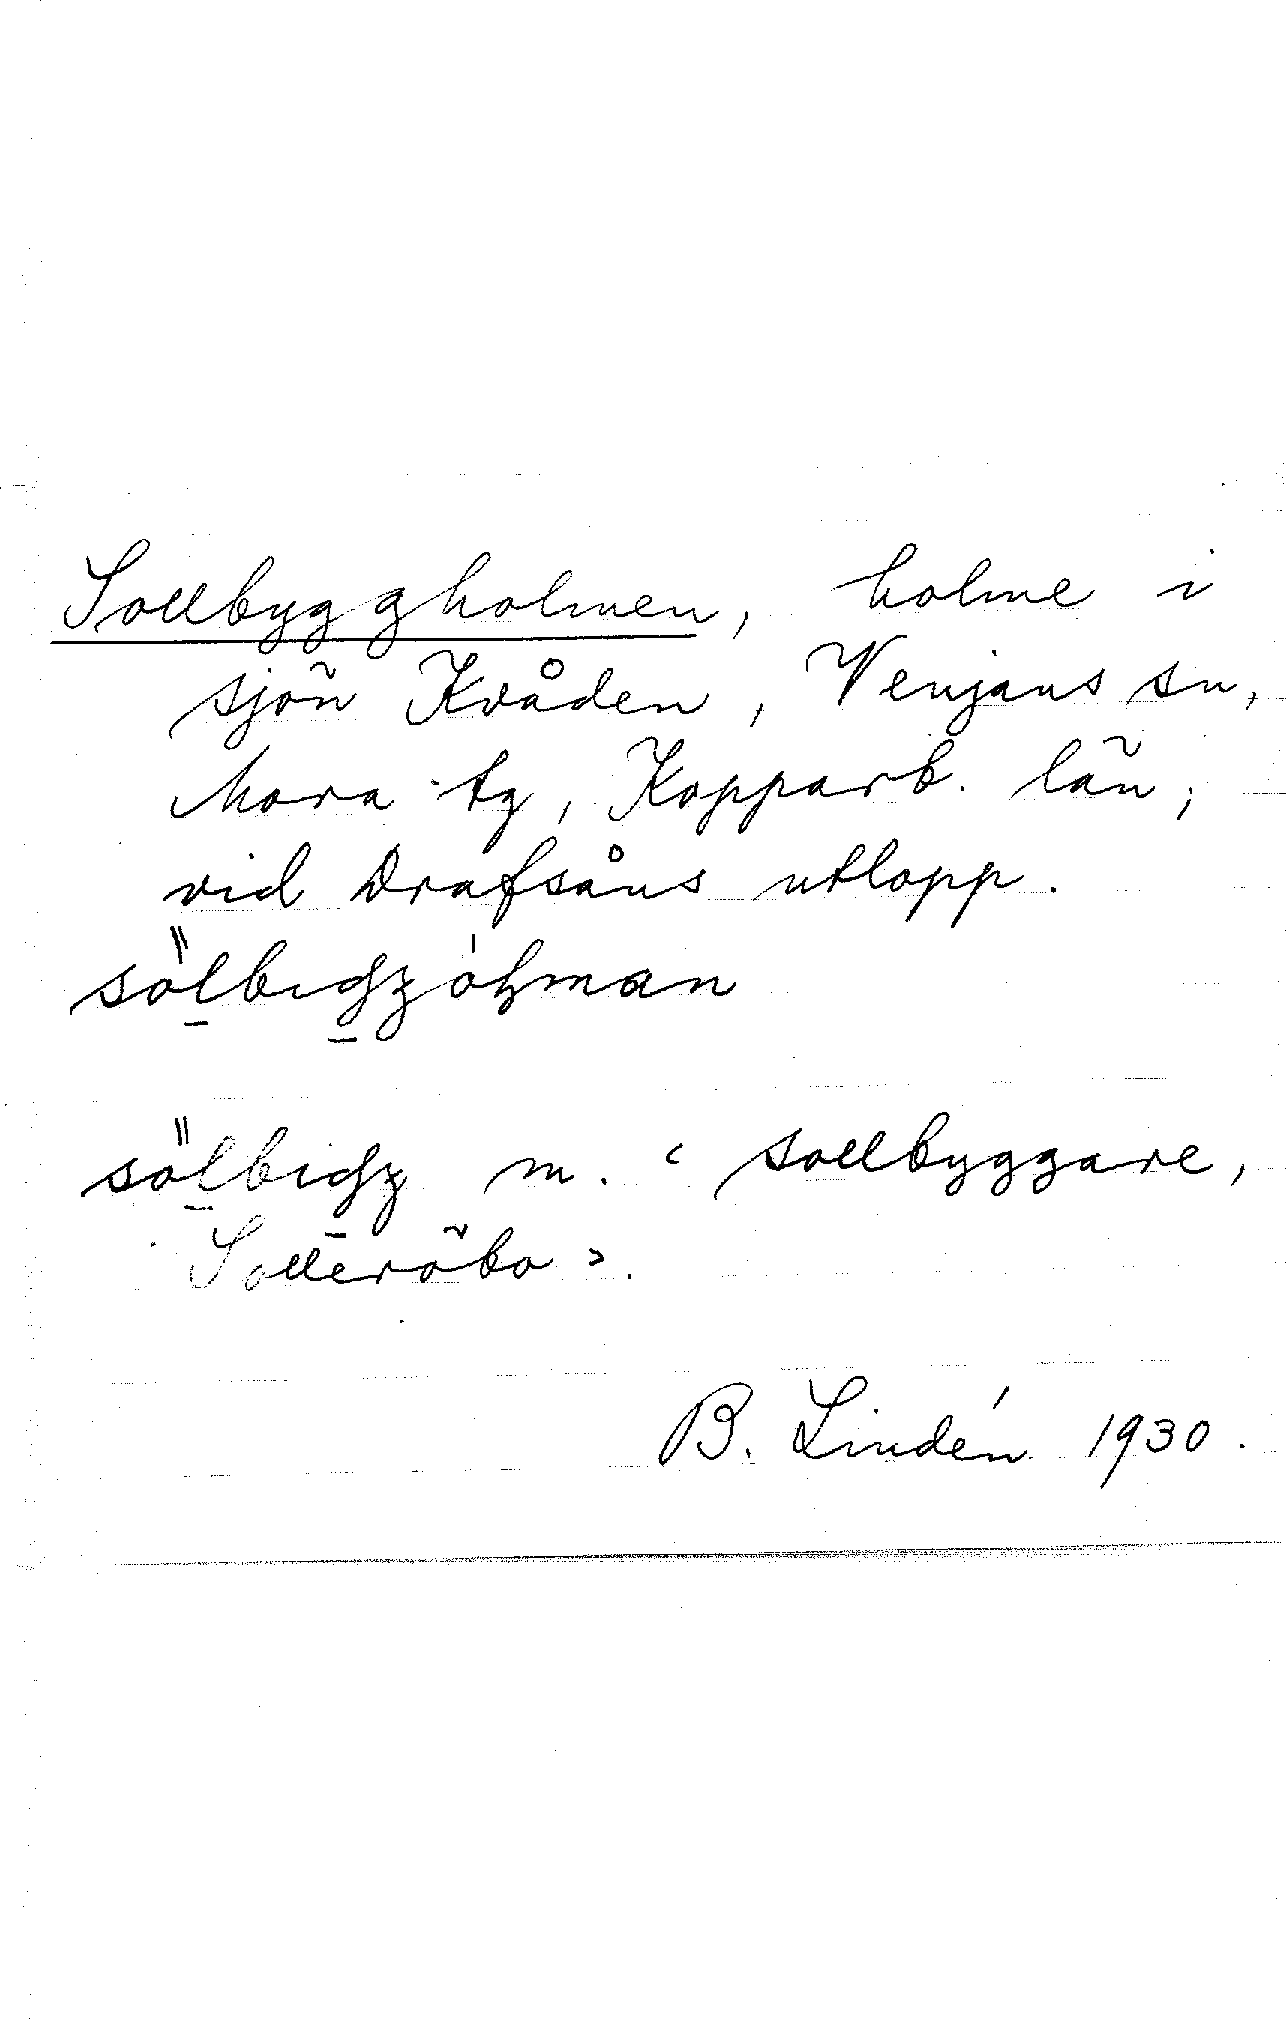 Sollbyggholmen, holme i
sjön Kvåden, Venjans sn,
Mora tg, Kopparb. län;
vid Drafsåns utlopp.
m. ‹ sollbyggare,
Solleröbo ›.
B. Lindén 1930.